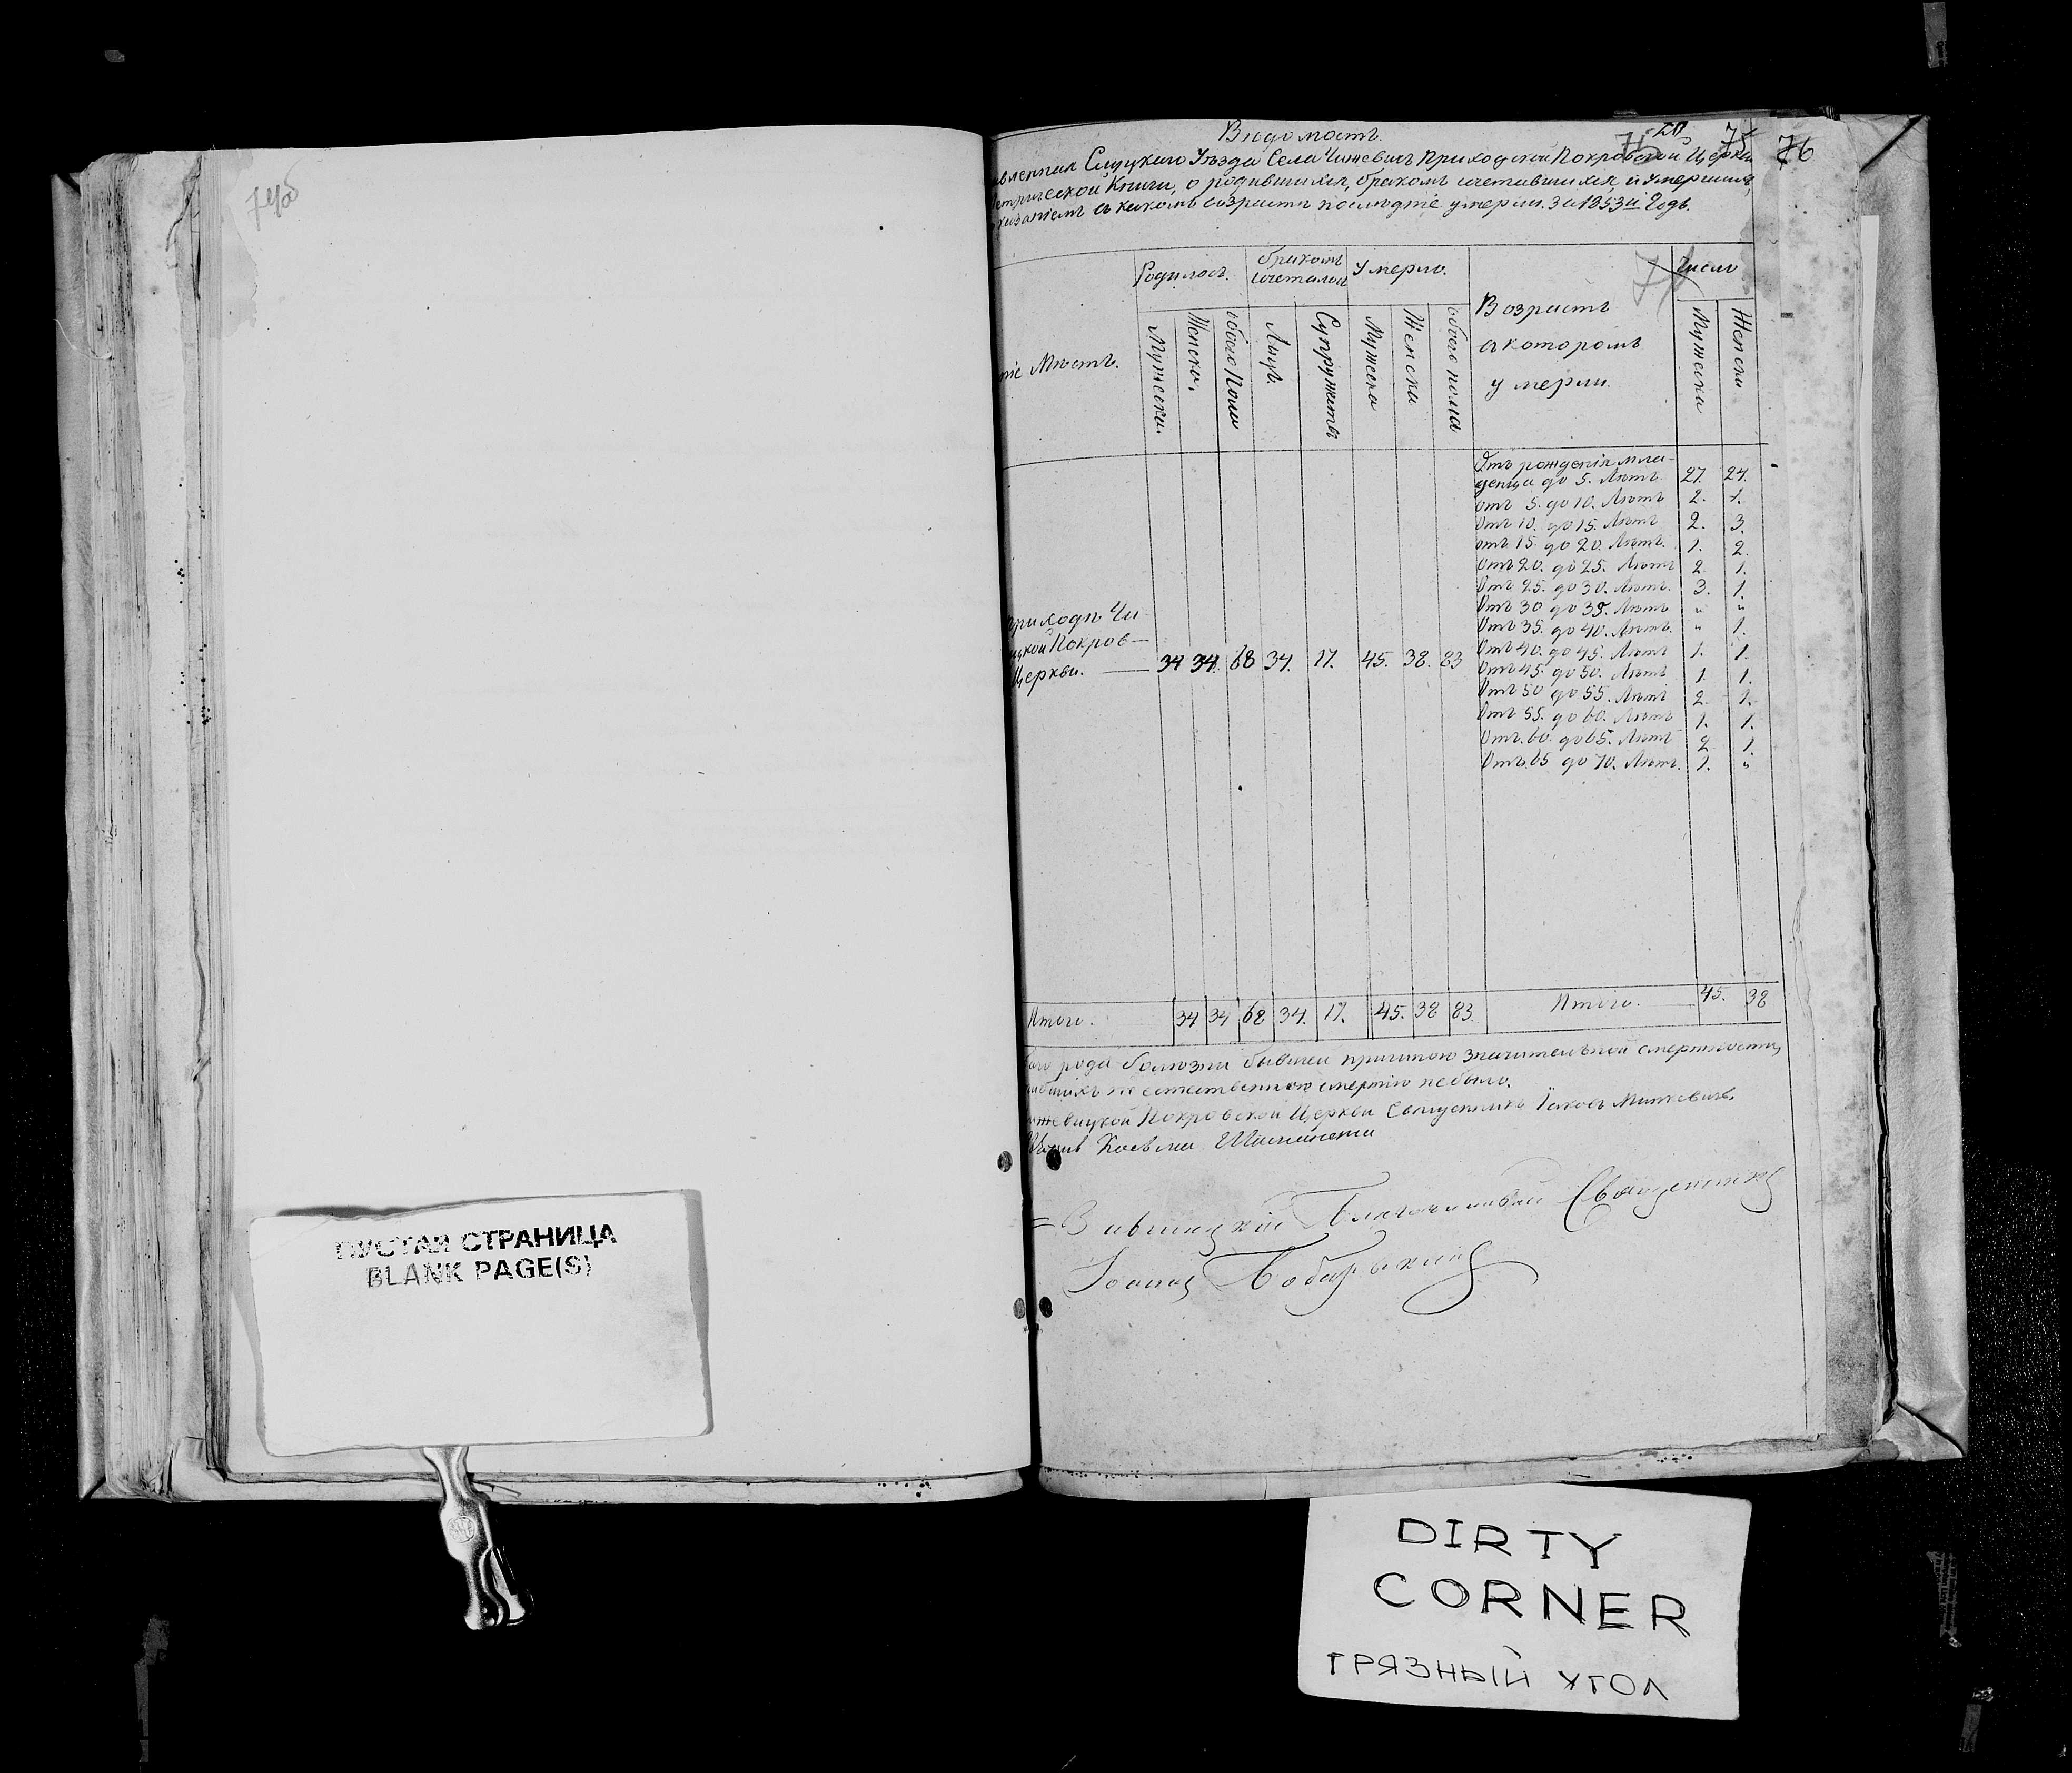 74об
ПУСТАЯ СТРАНИЦА
BLANK PAGE(S)
Вѣдомость
20 75 75 76
вленная Слуцкаго Уѣзда Села Чижевичъ Приходской Покровской Церкви
етрической Книги, о родившихся, бракомъ сочетавшихся, и умершихъ,
казаніемъ въ какомъ возрастѣ послѣдніе умерли. За 1853й Годъ.
ніе Мѣстъ.
Родилось.
бракомъ сочеталось
Умерло.
Возрастъ въ которомъ умерли.
Число
Мужеска.
Женска.
обоего Пола
Лицъ.
Супружествъ
Мужеска
Женска
обоего пола
Мужеска
Женска
Отъ рожденія мла-
денца до 5. Лѣтъ. 27. 24.
отъ 5. до 10. Лѣтъ 2. 1.
Отъ 10. до 15. Лѣтъ 2. 3.
отъ 15. до 20. Лѣтъ. 1. 2.
Отъ 20. до 25. Лѣтъ 2. 1.
Отъ 25. до 30. Лѣтъ. 3. 1.
Отъ 30 до 35. Лѣтъ " "
Отъ 35. до 40. Лѣтъ. " 1.
Отъ 40. до 45. Лѣтъ 1. 1.
Отъ 45. до 50. Лѣтъ 1. 1.
Отъ 50 до 55. Лѣтъ 2. 1.
Отъ 55. до 60. Лѣтъ 1. 1.
Отъ 60. до 65. Лѣтъ 2. 1.
Отъ 65 до 70. Лѣтъ. 1. "
Приходѣ Чи-
цкой Покров-
Церкви. 34 34. 68 34. 17. 45. 38. 83
Итого. 34 34 68 34. 17. 45. 38 83. Итого. 45. 38
рода болѣзни бывшей причиною значительной смертности,
не естественною смертію не было.
жевицкой Покровской Церкви Священникъ Іаковъ Мицкевичъ.
Косьма
Благочинный Священникъ
Іоаннъ
DIRTY
CORNER
ГРЯЗНЫЙ УГОЛ